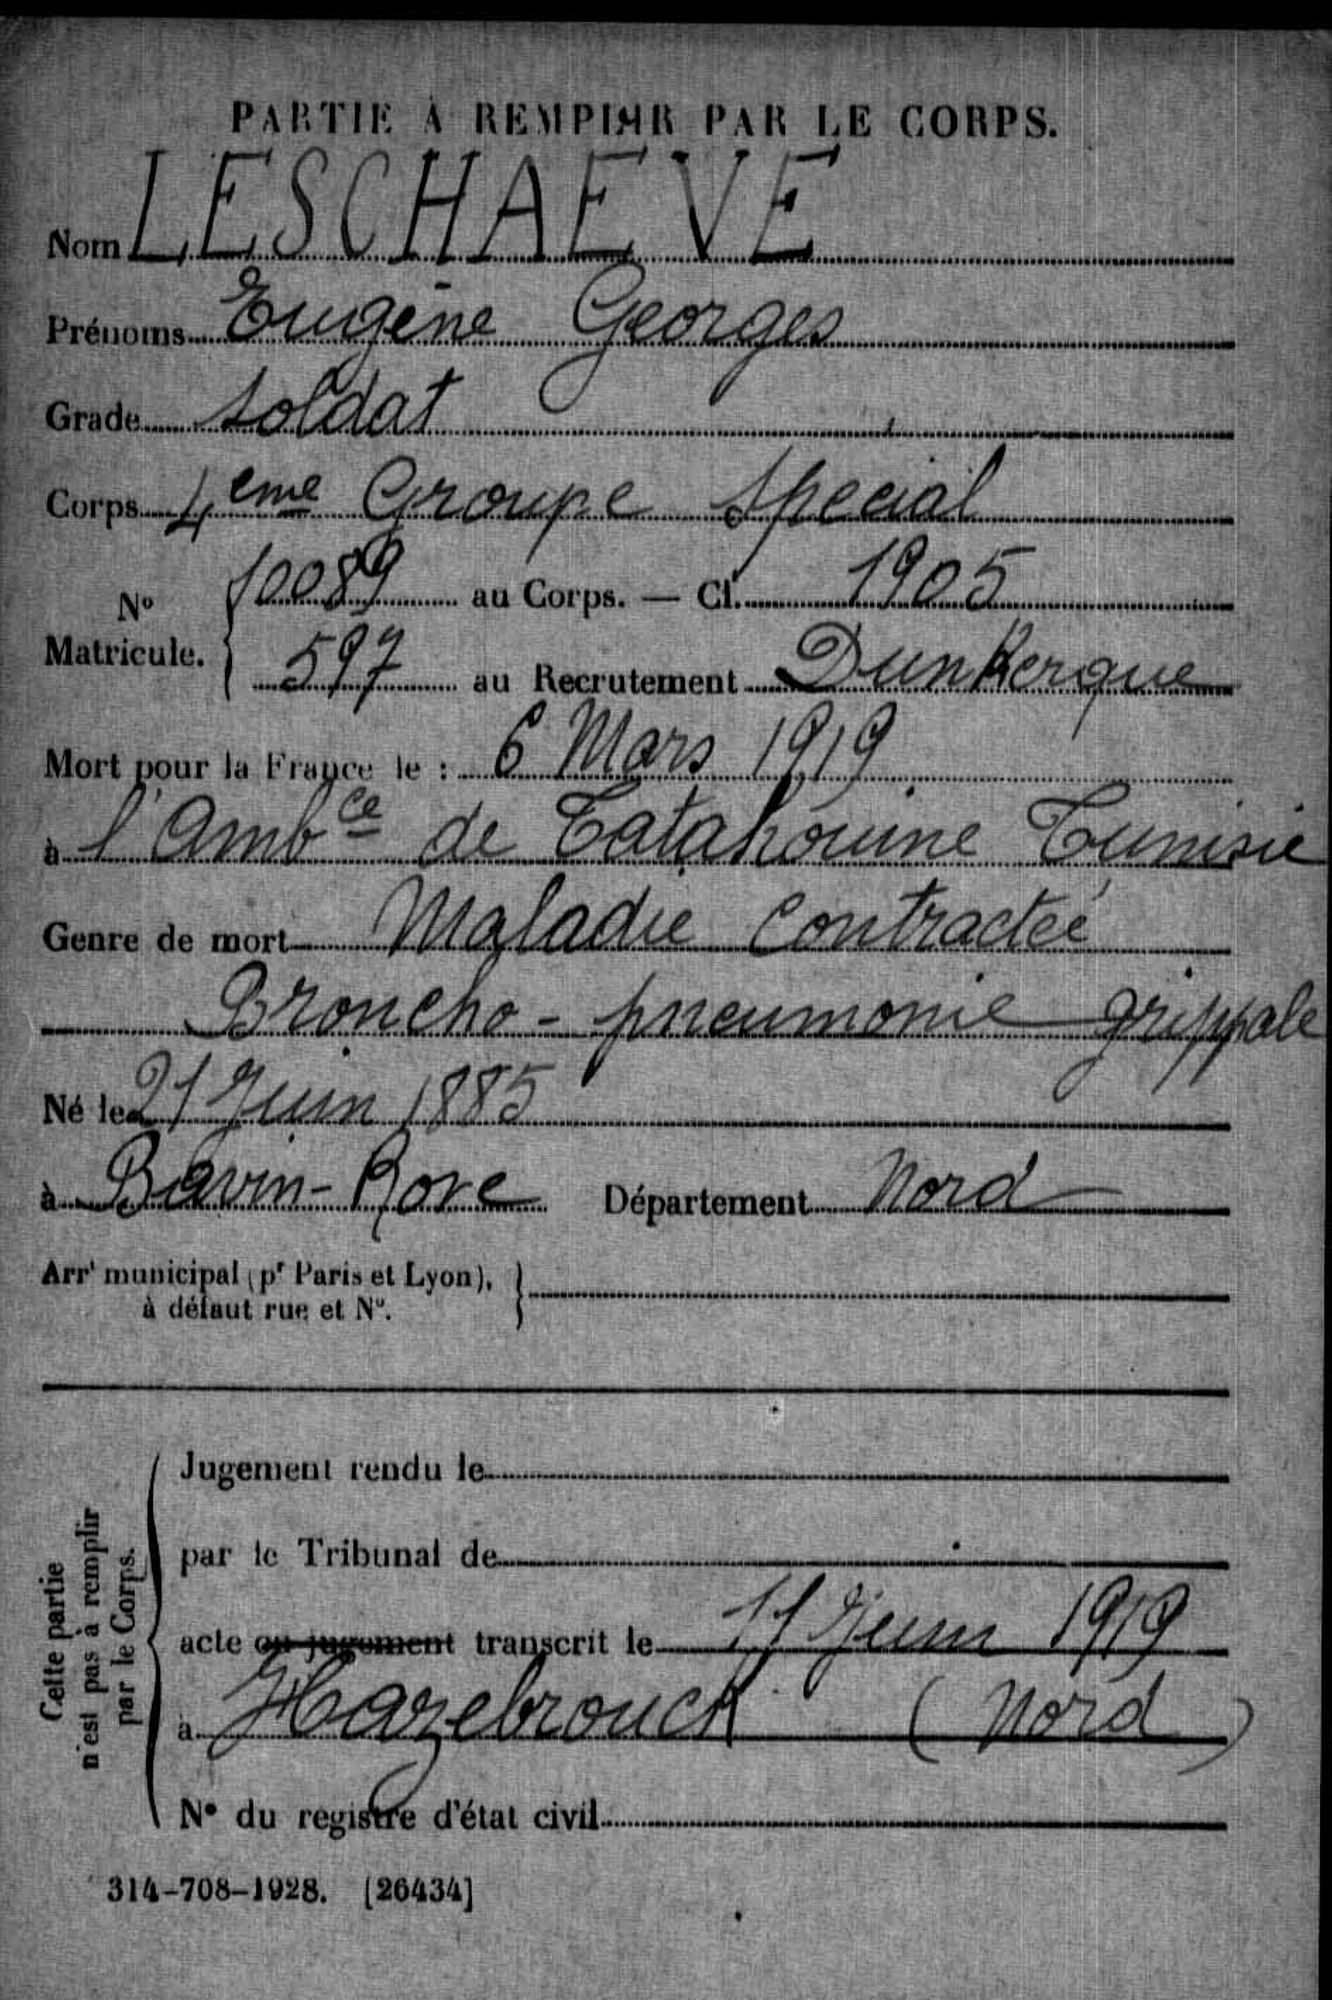 PARTIE À REMPLIR PAR LE CORPS.
Nom LESCHAEVE
Prénoms Eugène Georges
Grade soldat
Corps 4eme Groupe Spécial
No Matricule. { 10089 au Corps. — Cl. 1905
597 au Recrutement Dunkerque
Mort pour la France le : 6 Mars 1919
à l'Ambce de Tatahouine Tunisie
Genre de mort Maladie Contractée
Broncho-pneumonie grippale
Né le 21 Juin 1885
à Bavin-Rove Département Nord
Arrt municipal (pr Paris et Lyon), }
à défaut rue et No.
Cette partie
n'est pas à remplir
par le Corps.
Jugement rendu le
par le Tribunal de
acte ou jugement transcrit le 11 Juin 1919
à Hazebrouck (Nord)
No du registre d'état civil
314-708-1928. [26434]